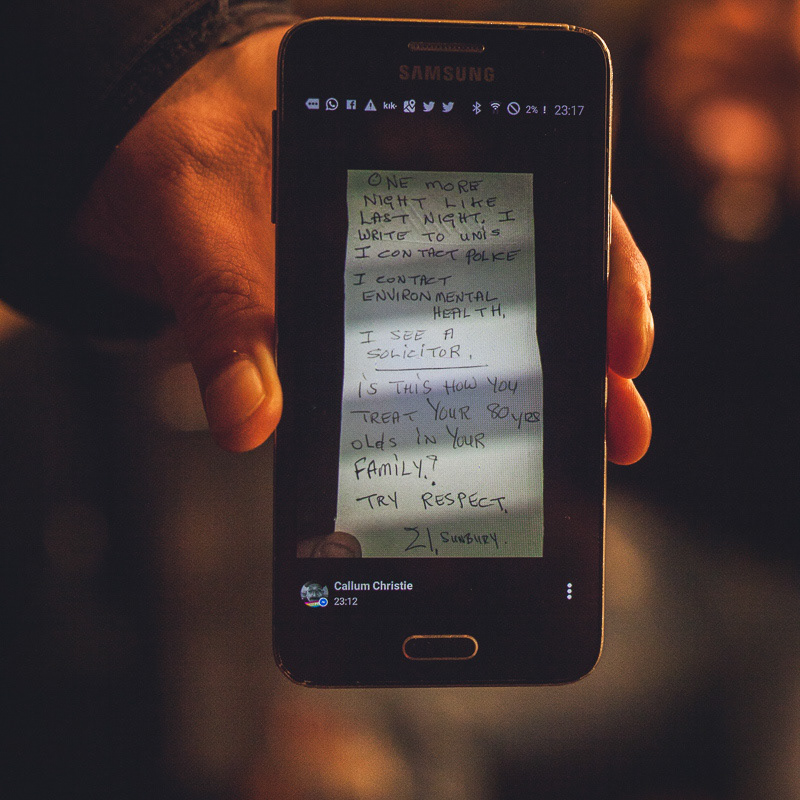 SAMSUNG
kik 2% ! 23:17
ONE MORE
NIGHT LIKE
LAST NIGHT. I
WRITE TO UNIS
I CONTACT POLICE
I CONTACT
ENVIRONMENTAL
HEALTH,
I SEE A
SOLICITOR.
IS THIS HOW YOU
TREAT YOUR 80 yrs
OLdS IN YOUR
FAMILY?
TRY RESPECT.
21, SUNBURY.
Callum Christie
23:12